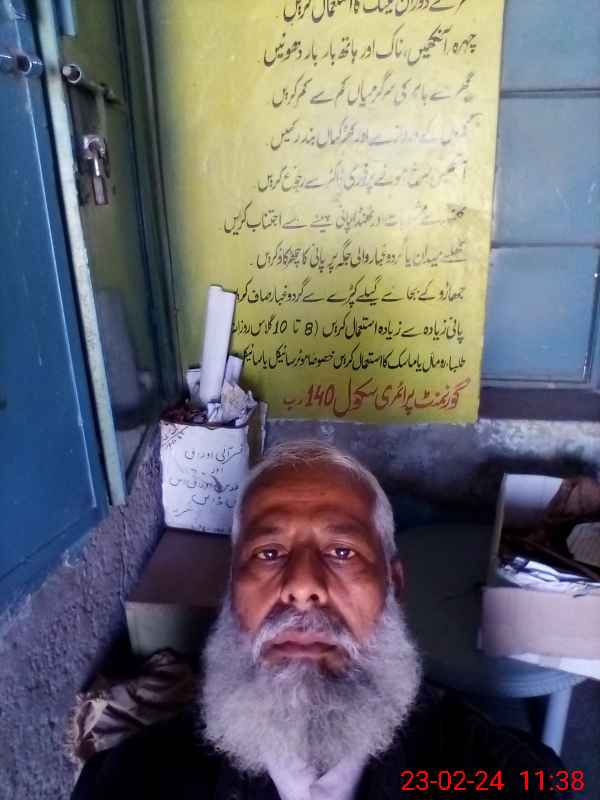 کے دوران عینک کا استعمال کریں۔
چہرہ، آنکھیں، ناک اور ہاتھ بار بار دھوئیں۔
گھر سے باہر کی سرگرمیاں کم سے کم کریں۔
کے دروازے اور کھڑکیاں بند رکھیں۔
آنکھیں سرخ ہونے پر فوری ڈاکٹر سے رجوع کریں۔
ٹھنڈا پانی پینے سے اجتناب کریں۔
میدان یا گردوغبار والی جگہ پر پانی کا چھڑکاؤ کریں۔
جھاڑو کے بجائے گیلے کپڑے سے گردوغبار صاف کریں
پانی زیادہ سے زیادہ استعمال کریں (8 تا 10 گلاس روزانہ
طلباء رومال یا ماسک کا استعمال کریں خصوصا موٹر سائیکل یا سائیکل
گورنمنٹ پرائمری سکول 140 رب
قرآنی اوراق
اور
مقدس اوراق اس
میں ڈالیں
23-02-24 11:38